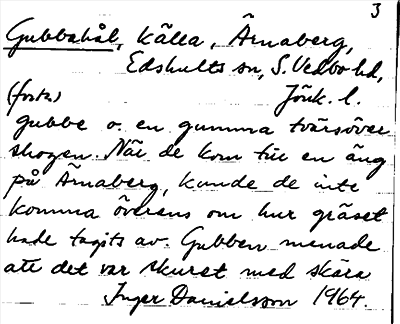 3
Gubbahål, källa, Ärnaberg,
Edshults sn, S. Vedbo hd,
(forts) Jönk. l.
gubbe o. en gumma tvärsöver
skogen. När de kom till en äng
på Ärnaberg, kunde de inte
komma överens om hur gräset
hade tagits av. Gubben menade
att det var skuret med skära
Inger Danielsson 1964.